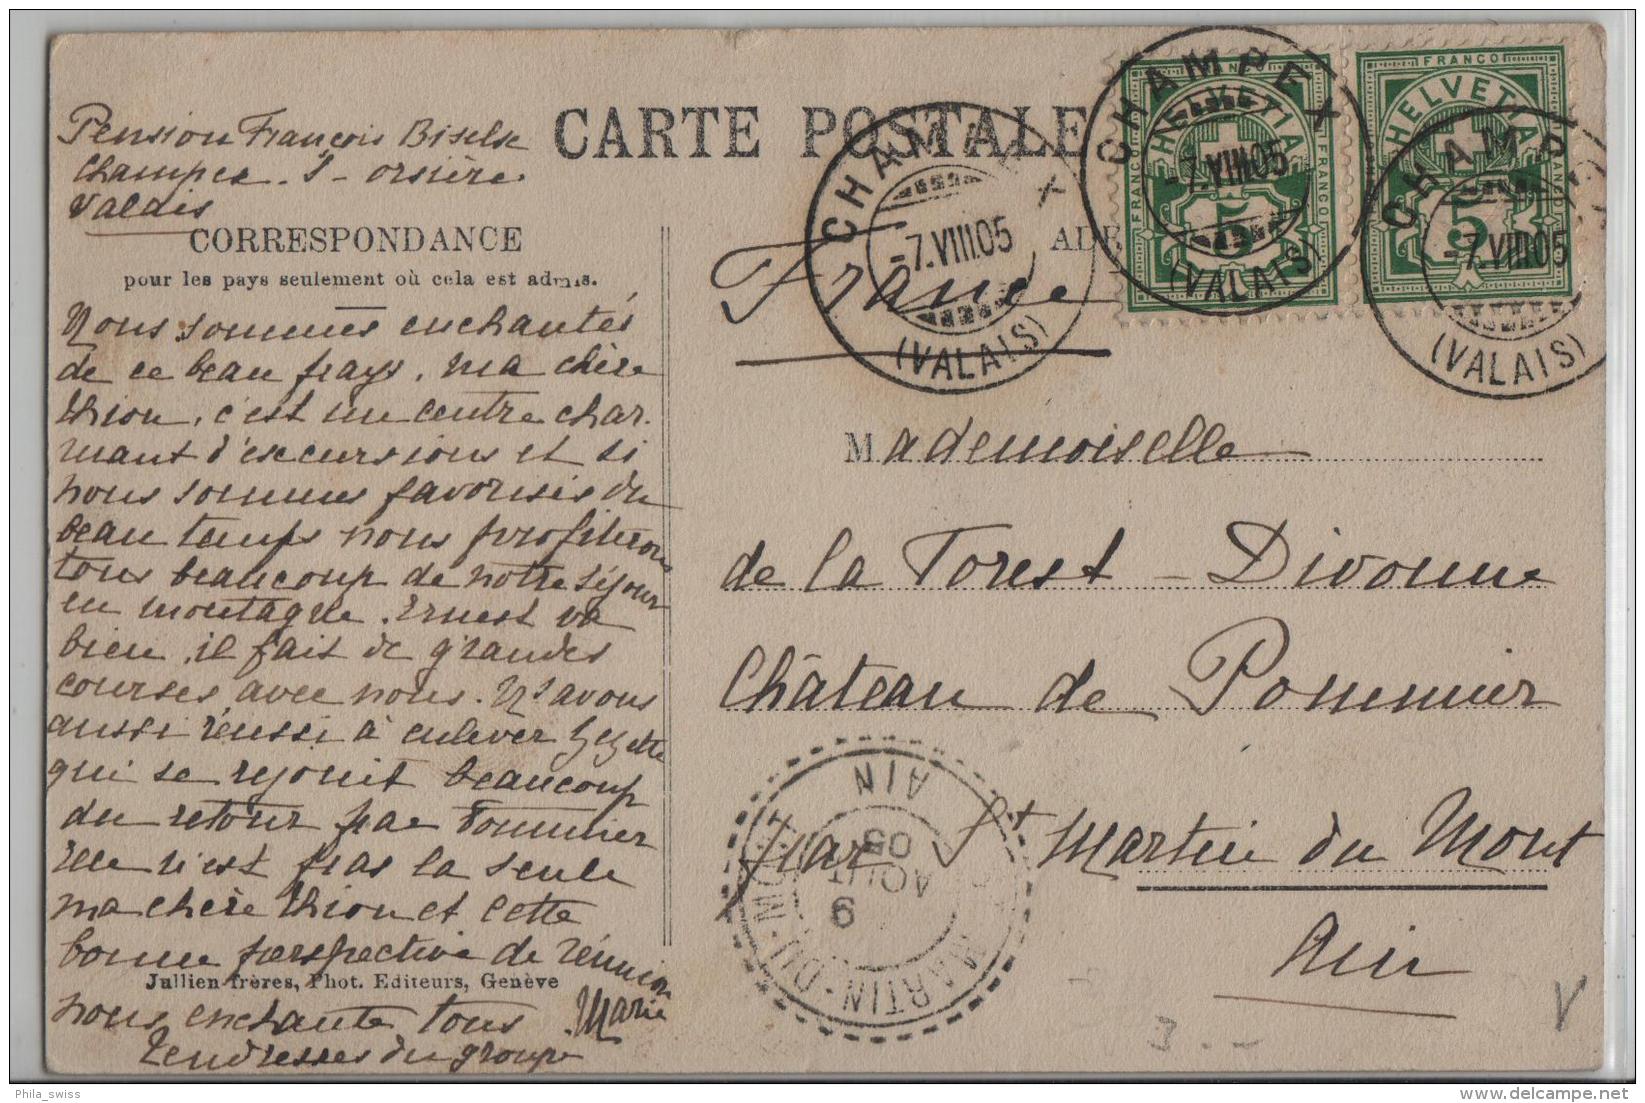 Pension François Biselx
Champex - s - orsière
Valais
CARTE POSTALE
CORRESPONDANCE
pour les pays seulement où cela est admis.
Nous sommes enchantés
de ce beau pays, ma chère
thion, c'est un centre char-
mant d'excursions et si
nous sommes favorisés du
beau temps nous profiterons
tous beaucoup de notre séjour
en montagne. Ernest va
bien, il fait de grandes
courses avec nous. N's avons
aussi réussi à enlever Zezette
qui se rejouit beaucoup
du retour par Pommier
elle n'est pas la seule
ma chère thion et cette
bonne perspective de réunion
Jullien frères, Phot. Editeurs, Genève
nous enchante tous. Marie
Tendresses du groupe
France
ADRE
Mademoiselle
de la Forest - Divonne
Château de Pommier
par St Martin du Mont
Ain
CHAMPEX
-7.VIII.05
(VALAIS)
CHAMPEX
-7.VIII.05
(VALAIS)
CHAMPEX
-7.VIII.05
(VALAIS)
FRANCO
HELVETIA
FRANCO
FRANCO
5
FRANCO
HELVETIA
FRANCO
5
ST MARTIN-DU-MONT
9
AOUT
05
AIN
V
3 . -
Phila_swiss
delcampe.net